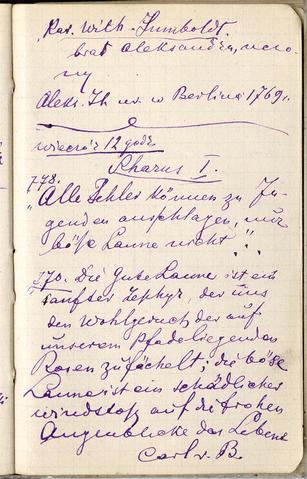 Kar. Wilh. Humboldt.
brat Aleksandra, uczo-
ny
Aleks. H. ur. w Berlinie 1769 r.
wieczór 12 godz.
I.
778.
"Alle Fehler können zu Ju-
genden anschlagen, nur
böse Laune nicht."
770. Die gute Laune ist ein
sanfter Zephyr, der uns
den Wohlgeruch der auf
unserem Pfade liegenden
Rosen zufächelt; die böse
Laune ist ein schädlicher
Windstoß auf die frohen
Augenblicke des Lebens
Carl v. B.